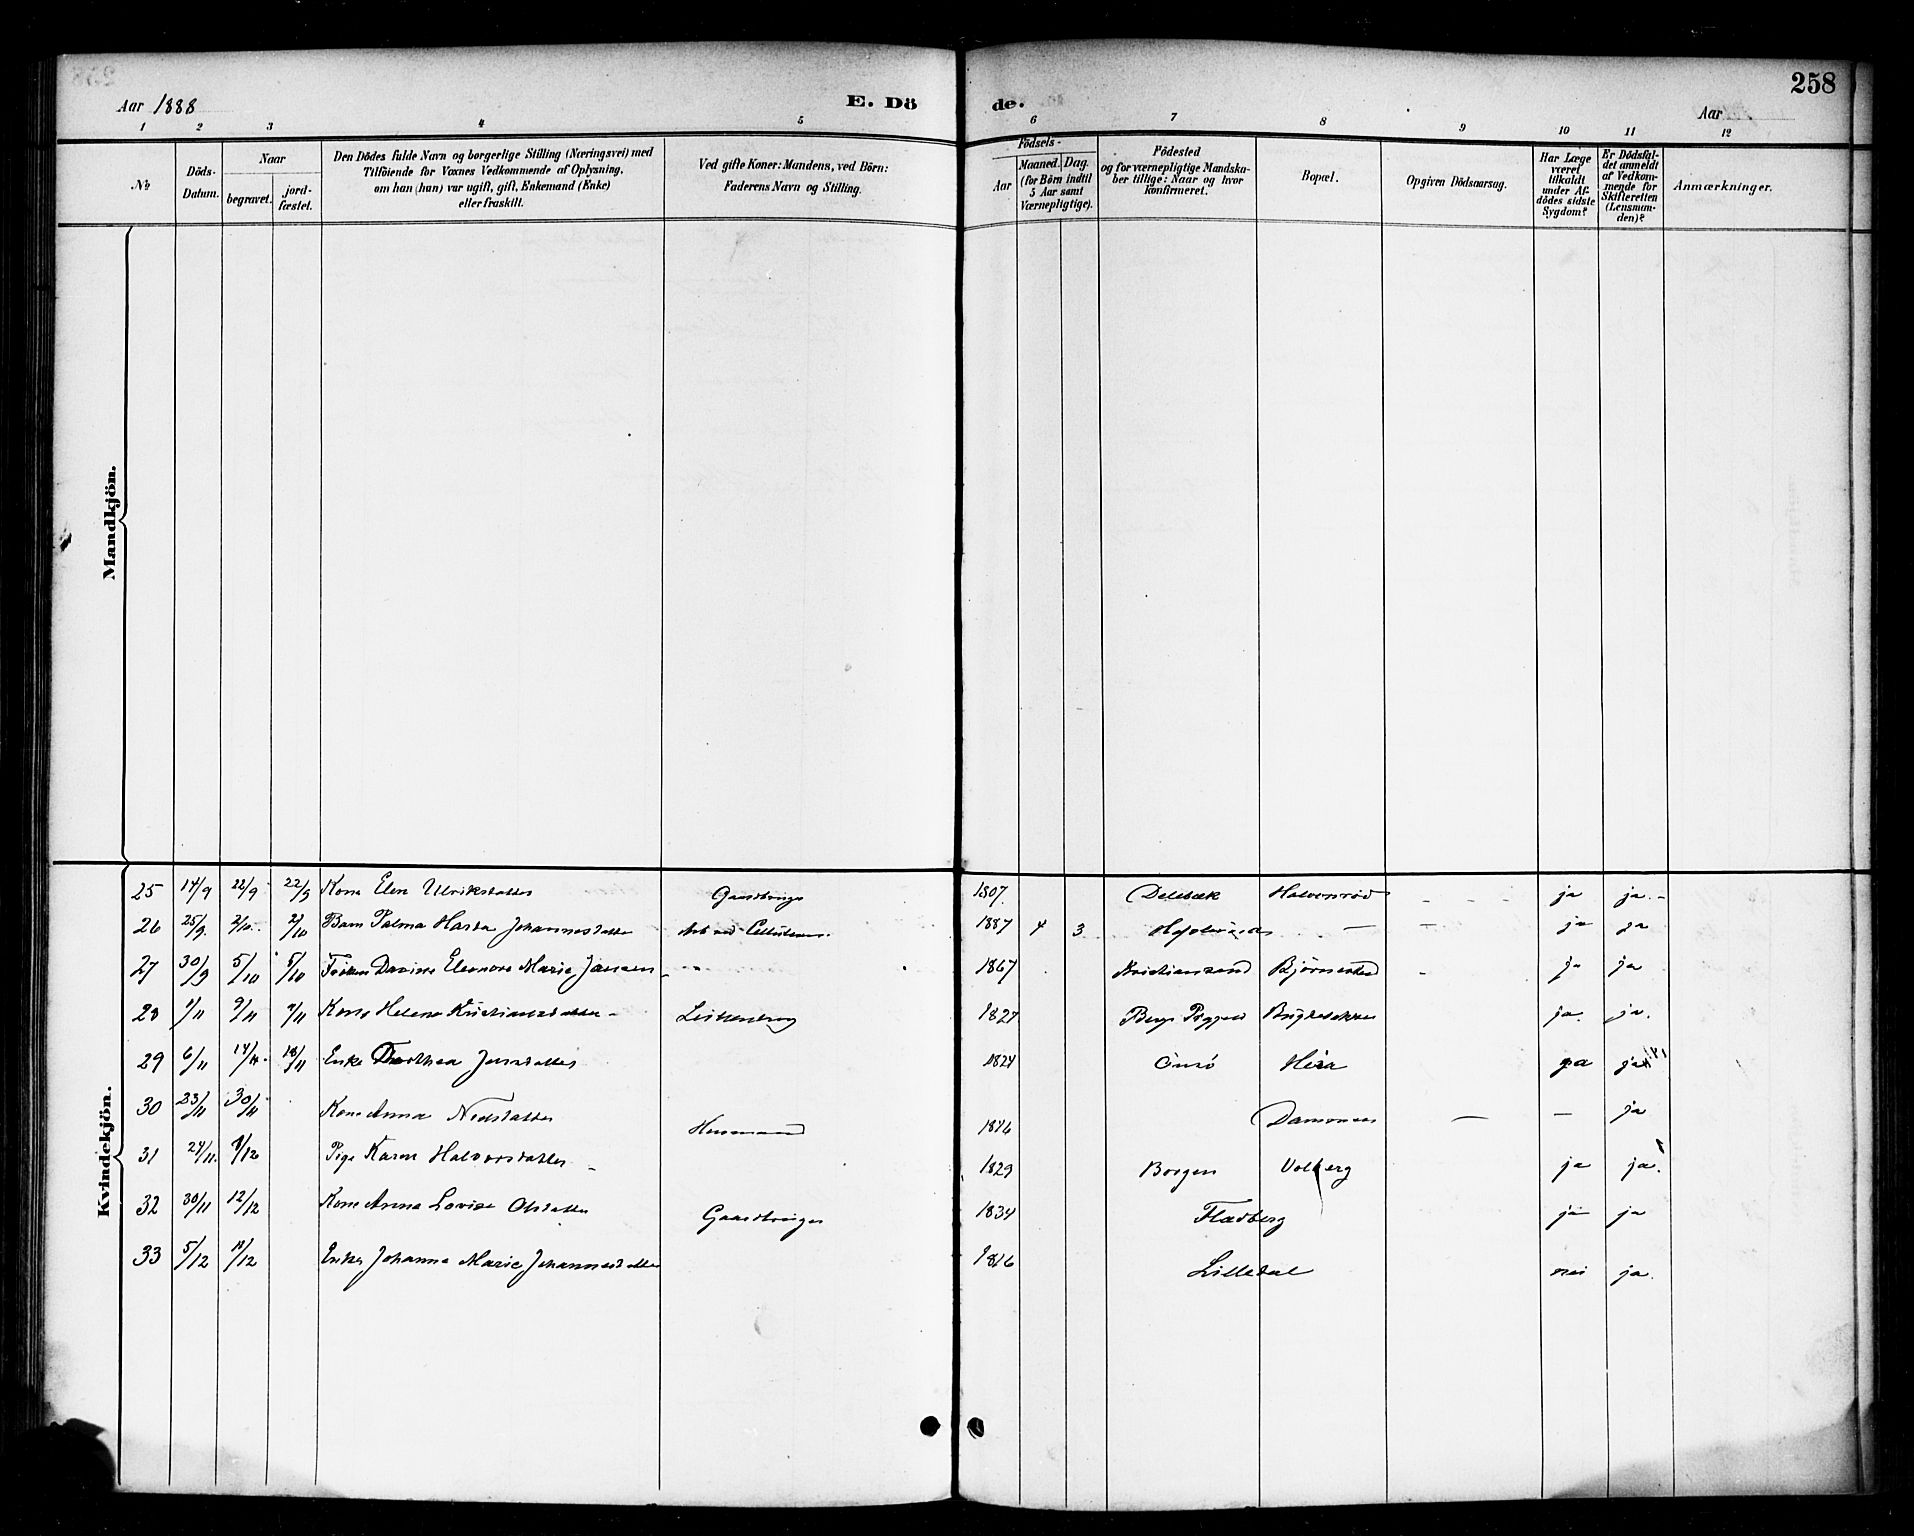 258
Aar 1888
E. Dö
de.
Aar
1 2 3 4 5 6 7 8 9 10 11 12
№
Döds-
Datum.
Naar
begravet.
jord-
fæstet.
Den Dödes fulde Navn og borgerlige Stilling (Næringsvei) med
Tilföiende for Voxnes Vedkommende af Oplysning,
om han (hun) var ugift, gift, Enkemand (Enke)
eller fraskilt.
Ved gifte Koner: Mandens, ved Börn:
Faderens Navn og Stilling.
Födsels-
Aar
Maaned.
Dag.
(for Börn indtil
5 Aar samt
Værnepligtige).
Födested
og for værnepligtige Mandska-
ber tillige: Naar og hvor
konfirmeret.
Bopæl.
Opgiven Dödsaarsag.
Har Læge
været
tilkaldt
under Af-
dödes sidste
Sygdom?
Er Dödsfal-
det anmeldt
af Vedkom-
mende for
Skifteretten
(Lensman-
den)?
Anmærkninger.
Mandkjön.
Kvindekjön.
25 14/9 22/9 22/9 Kone Elen Ulriksdatter Gaardbruger 1807. Delebæk Halvorsröd ja ja
26 25/9 2/10 2/10 Barn Palma Johannesdatter 1887 4 3 ja ja
27 30/9 5/10 5/10 Davine Eleonore Marie Jansen 1867 Kristiansand Björnestad ja ja
28 1/11 9/11 9/11 Kone Helene Kristiansdatter 1827 ja. ja.
29 6/11 14/11 18/11 Enke Dorthea Jensdatter 1824 Onsö ja ja
30 23/11 30/11 Kone Anna Husmand 1846 — — ja
31 24/11 Pige Karen Halvorsdatter 1829 Borgen Volberg ja ja
32 30/11 12/12 Kone Anna Lovise Olsdatter Gaardbruger 1834 Fladberg ja ja
33 5/12 Enke Johanne Marie Johannesdatter 1816 Lilledal nei ja.